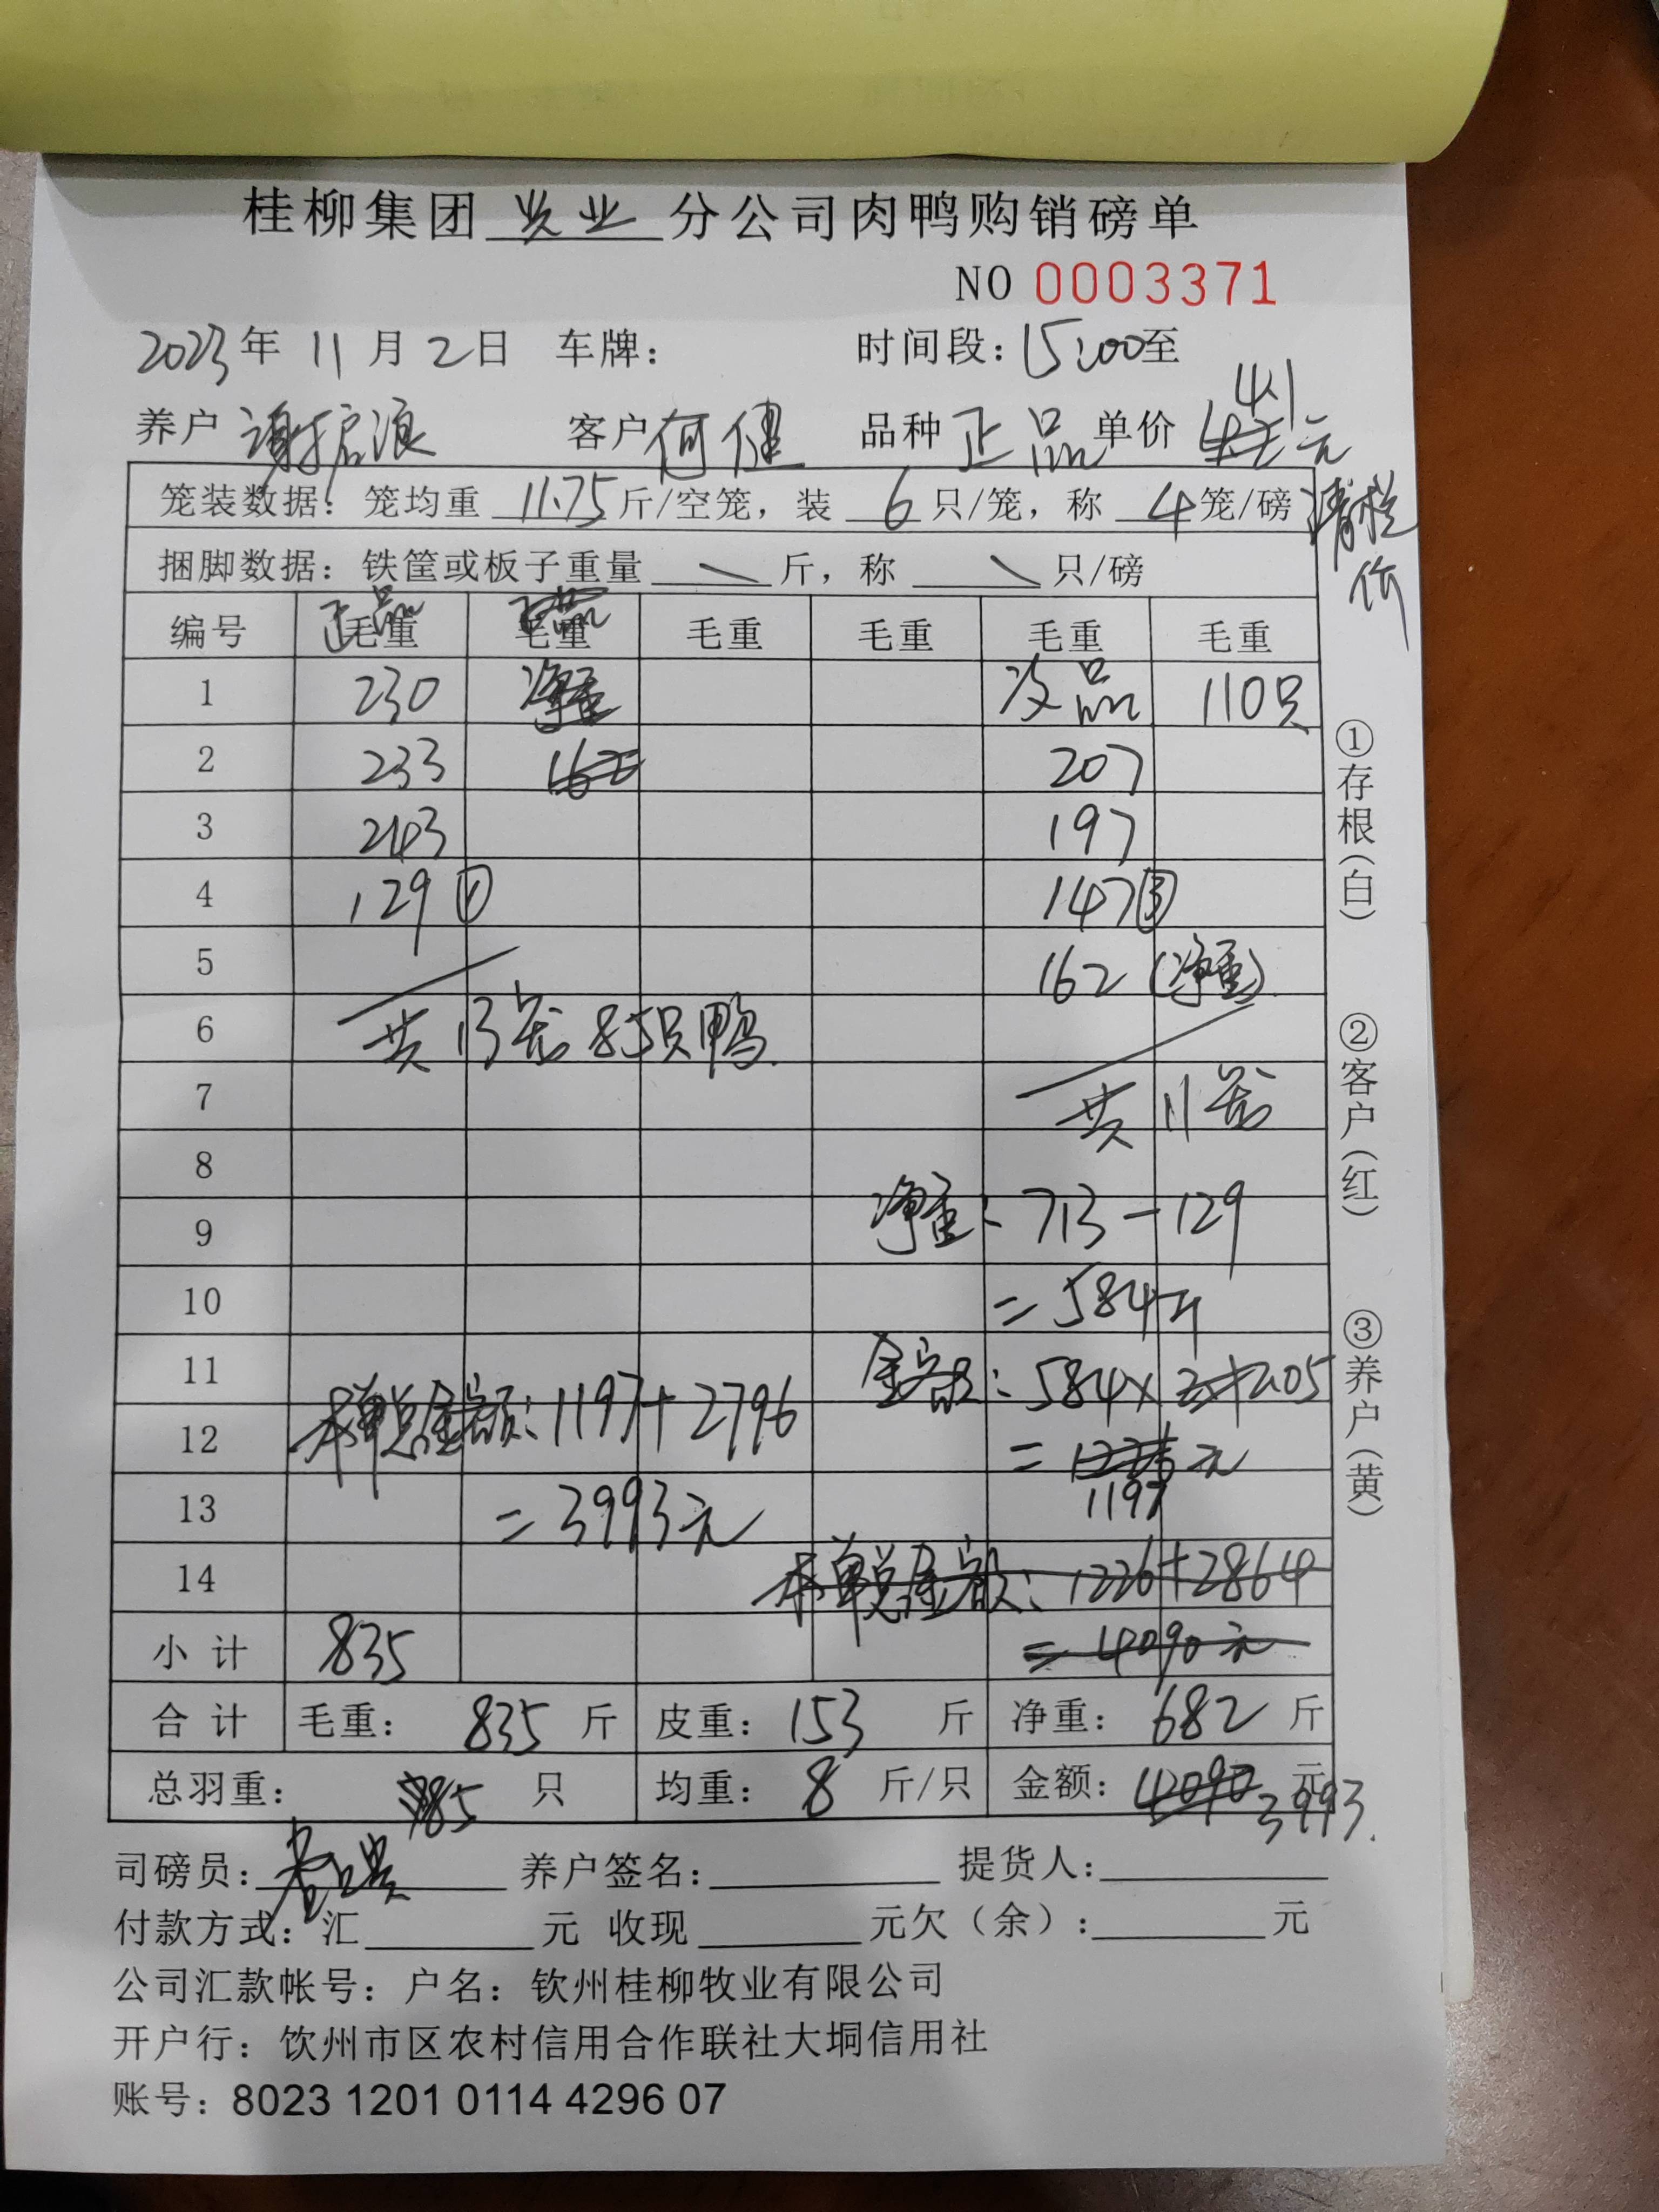 桂柳集团 牧业 分公司肉鸭购销磅单
NO 0003371
2023年 11月 2日 车牌： 时间段：15:00至
4.1
养户 谢振浪 客户 何健 品种 正品 单价 元
清栏价
笼装数据：笼均重 11.75 斤/空笼，装 6 只/笼，称 4 笼/磅
捆脚数据：铁筐或板子重量 斤，称 只/磅
正品
编号 毛重 毛重 毛重 毛重 毛重 毛重
1 230 净重 次品 110只
2 233 162 207
3 243 197
4 129 ① 147 ③
5 162 (净重)
6 共13笼 85只鸭
7 共11笼
8
9 净重：713-129
10 =584斤
11 金额：584×2.05
12 本单总金额：1197+2796 = 元
1197
13 =3993元
14 本单总金额：1226+2864
小计 835 =4090元
合计 毛重：835斤 皮重：153斤 净重：682斤
总羽重：85 只 均重：8 斤/只 金额：4090 元
3993.
司磅员： 养户签名： 提货人：
付款方式：汇 元 收现 元欠（余）： 元
公司汇款帐号：户名：钦州桂柳牧业有限公司
开户行：饮州市区农村信用合作联社大垌信用社
账号：8023 1201 0114 4296 07
①存根（白）
②客户（红）
③养户（黄）